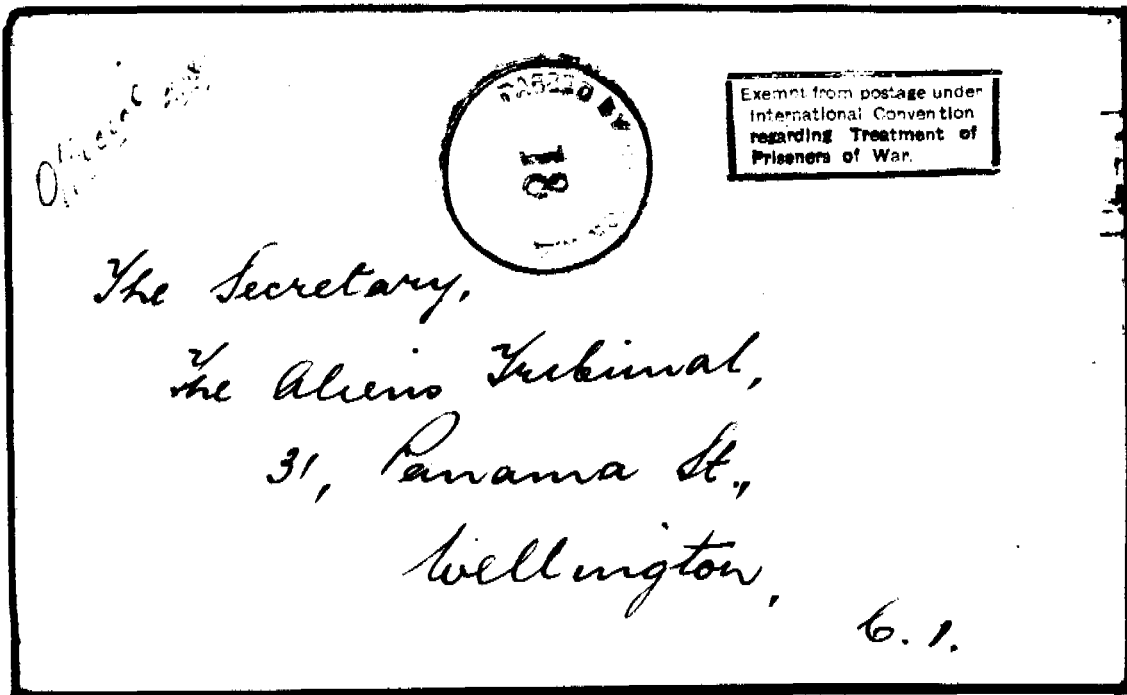 PASSED BY
81
Exempt from postage under
International Convention
regarding Treatment of
Prisoners of War.
The Secretary,
The Aliens Tribunal,
31, Panama St.,
Wellington,
C.1.